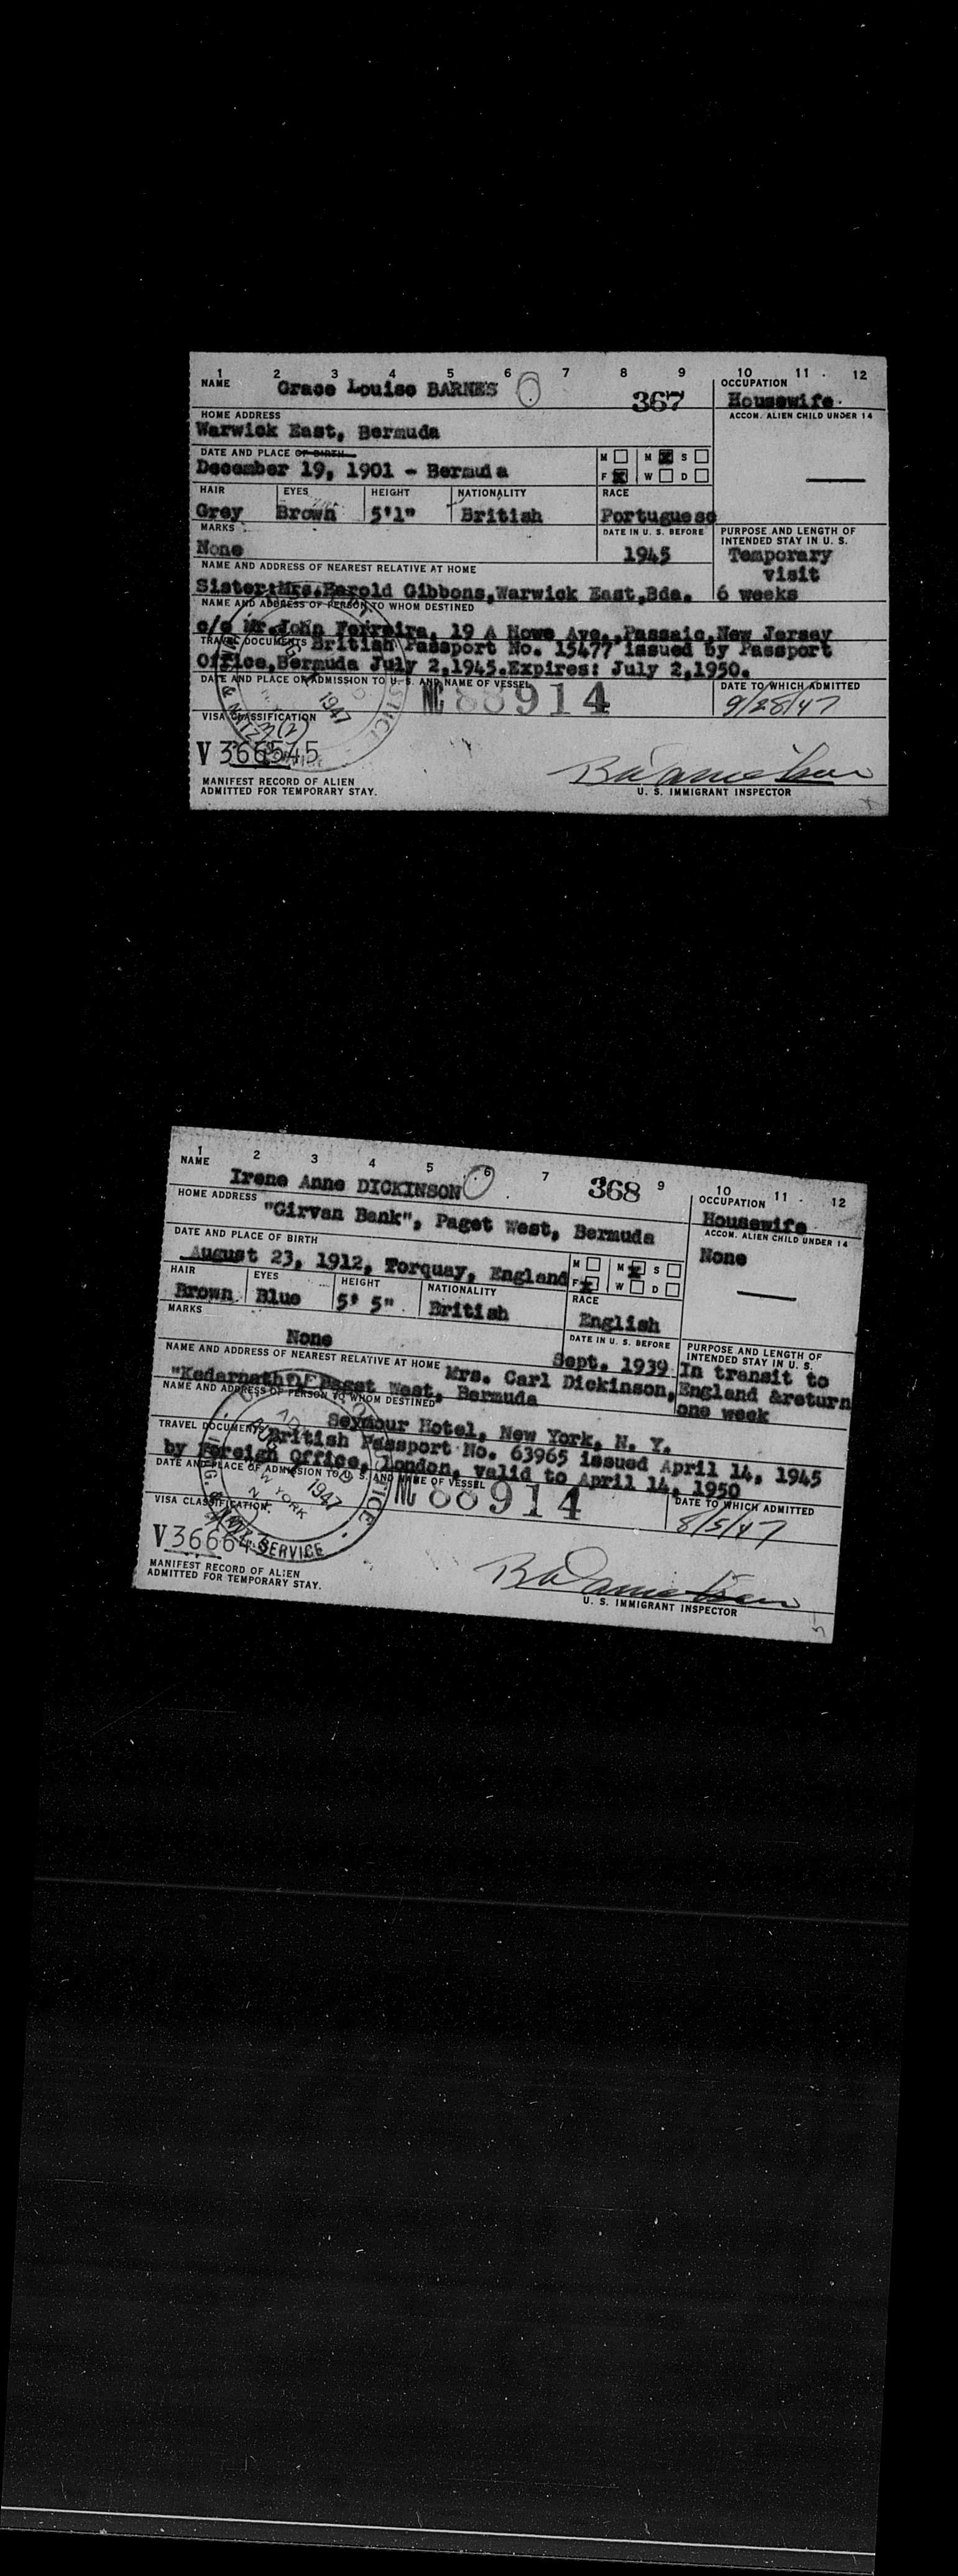 1 2 3 4 5 6 7 8 9 10 11 12
NAME Grace Louise BARNES 367 OCCUPATION
Housewife
HOME ADDRESS ACCOM. ALIEN CHILD UNDER 14
Warwick East, Bermuda
DATE AND PLACE OF BIRTH M M S
December 19, 1901 - Bermuda F W D
HAIR EYES HEIGHT NATIONALITY RACE
Grey Brown 5'1" British Portuguese
MARKS DATE IN U. S. BEFORE PURPOSE AND LENGTH OF
INTENDED STAY IN U. S.
None 1945 Temporary
visit
NAME AND ADDRESS OF NEAREST RELATIVE AT HOME
Sister:Mrs.Harold Gibbons,Warwick East,Bda. 6 weeks
NAME AND ADDRESS OF PERSON TO WHOM DESTINED
c/o Mr.John Ferreira, 19 A Howe Ave.,Passaic,New Jersey
TRAVEL DOCUMENTS British Passport No. 15477 issued by Passport
Office,Bermuda July 2,1945.Expires: July 2,1950.
DATE AND PLACE OF ADMISSION TO U. S. AND NAME OF VESSEL DATE TO WHICH ADMITTED
1947 NC 88914 9/28/47
VISA CLASSIFICATION
3(2)
V 366545
MANIFEST RECORD OF ALIEN
ADMITTED FOR TEMPORARY STAY. U. S. IMMIGRANT INSPECTOR
1 2 3 4 5 6 7 9 10 11 12
NAME Irene Anne DICKINSON 368 OCCUPATION
Housewife
HOME ADDRESS "Girvan Bank", Paget West, Bermuda ACCOM. ALIEN CHILD UNDER 14
None
DATE AND PLACE OF BIRTH M M S
August 23, 1912, Torquay, England F W D
HAIR EYES HEIGHT NATIONALITY RACE
Brown Blue 5' 5" British English
MARKS DATE IN U. S. BEFORE PURPOSE AND LENGTH OF
INTENDED STAY IN U. S.
None Sept. 1939 In transit to
NAME AND ADDRESS OF NEAREST RELATIVE AT HOME Mrs. Carl Dickinson, England &return
"Kedarnath", Paget West, Bermuda one week
NAME AND ADDRESS OF PERSON TO WHOM DESTINED
Seymour Hotel, New York, N. Y.
TRAVEL DOCUMENTS British Passport No. 63965 issued April 14, 1945
by Foreign Office, London, valid to April 14, 1950
DATE AND PLACE OF ADMISSION TO U. S. AND NAME OF VESSEL DATE TO WHICH ADMITTED
1947 NEW YORK N.Y. NC 88914 8/5/47
VISA CLASSIFICATION
SERVICE
MANIFEST RECORD OF ALIEN
ADMITTED FOR TEMPORARY STAY. U. S. IMMIGRANT INSPECTOR